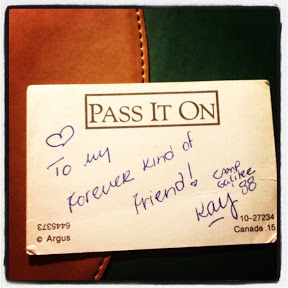 PASS IT ON
♡ To my
Forever kind of
Friend!
CAMP
Galilee
88
Kay
6445373
© Argus
10-27234
Canada .15